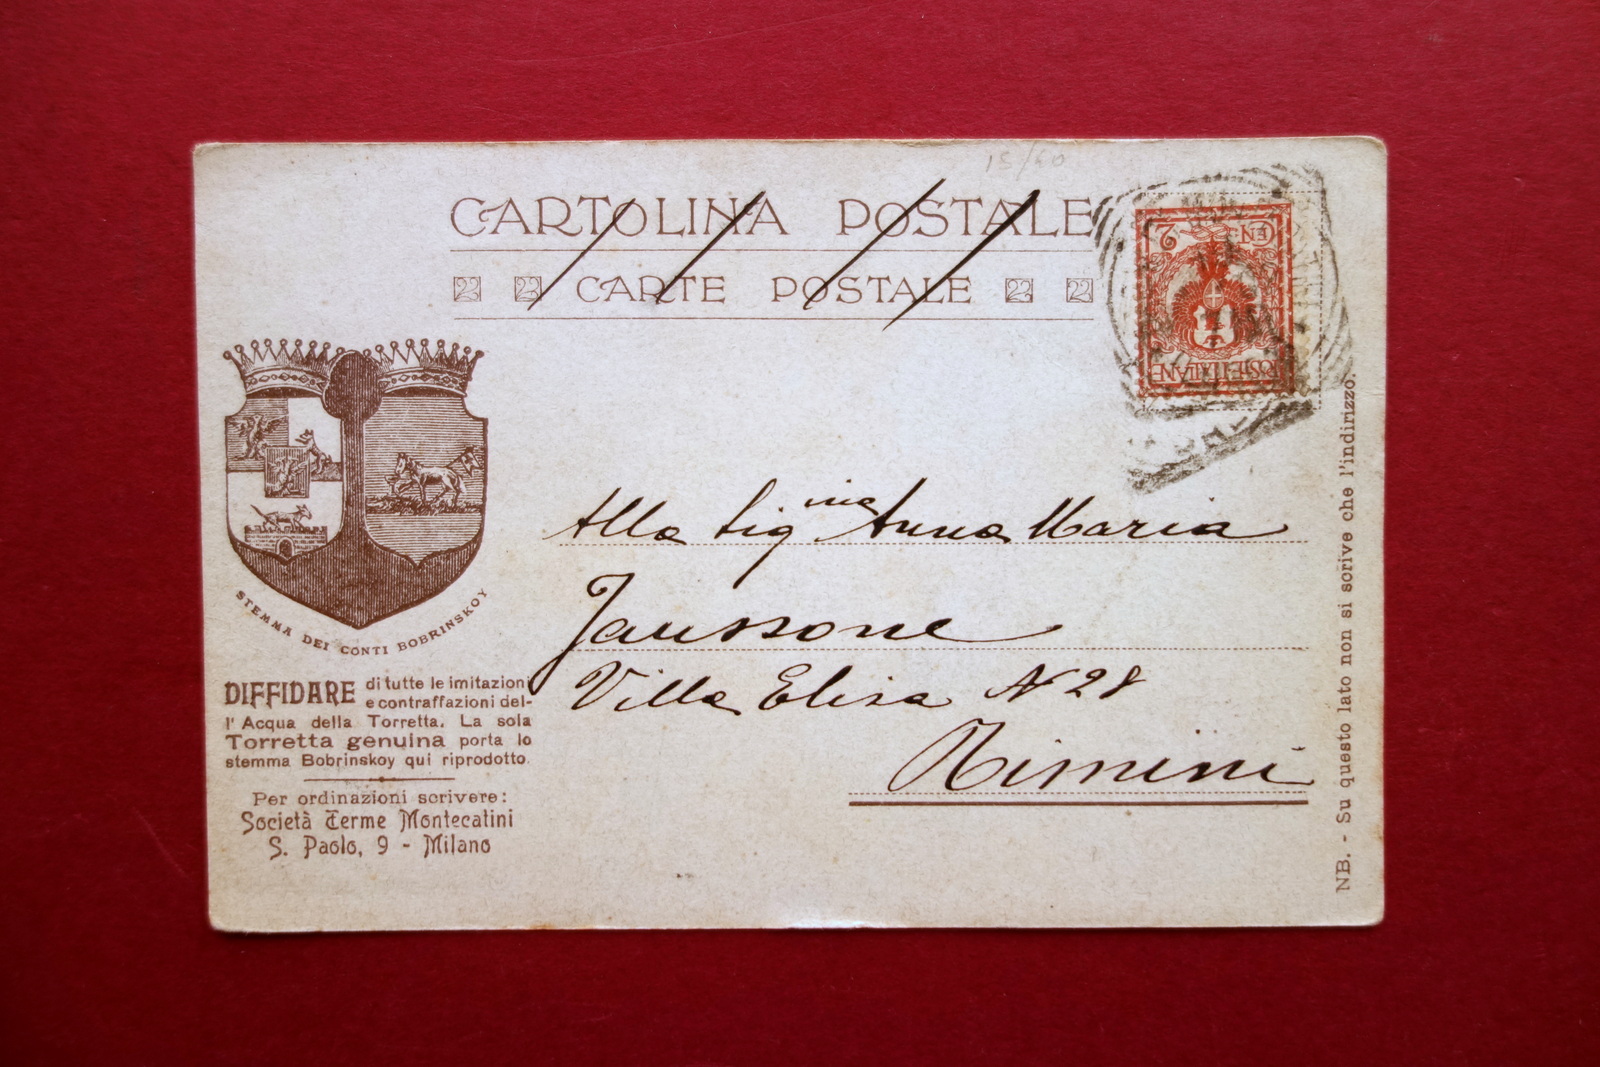 15/60
CARTOLINA POSTALE
CARTE POSTALE
CEN. 2
POSTE ITALIANE
STEMMA DEI CONTI BOBRINSKOY
DIFFIDARE di tutte le imitazioni
e contraffazioni del-
l'Acqua della Torretta. La sola
Torretta genuina porta lo
stemma Bobrinskoy qui riprodotto.
Per ordinazioni scrivere:
Società Terme Montecatini
S. Paolo, 9 - Milano
Alla Sigina Anna Maria
Janssone
Villa Elisa N 28
Rimini
NB. - Su questo lato non si scrive che l'indirizzo.